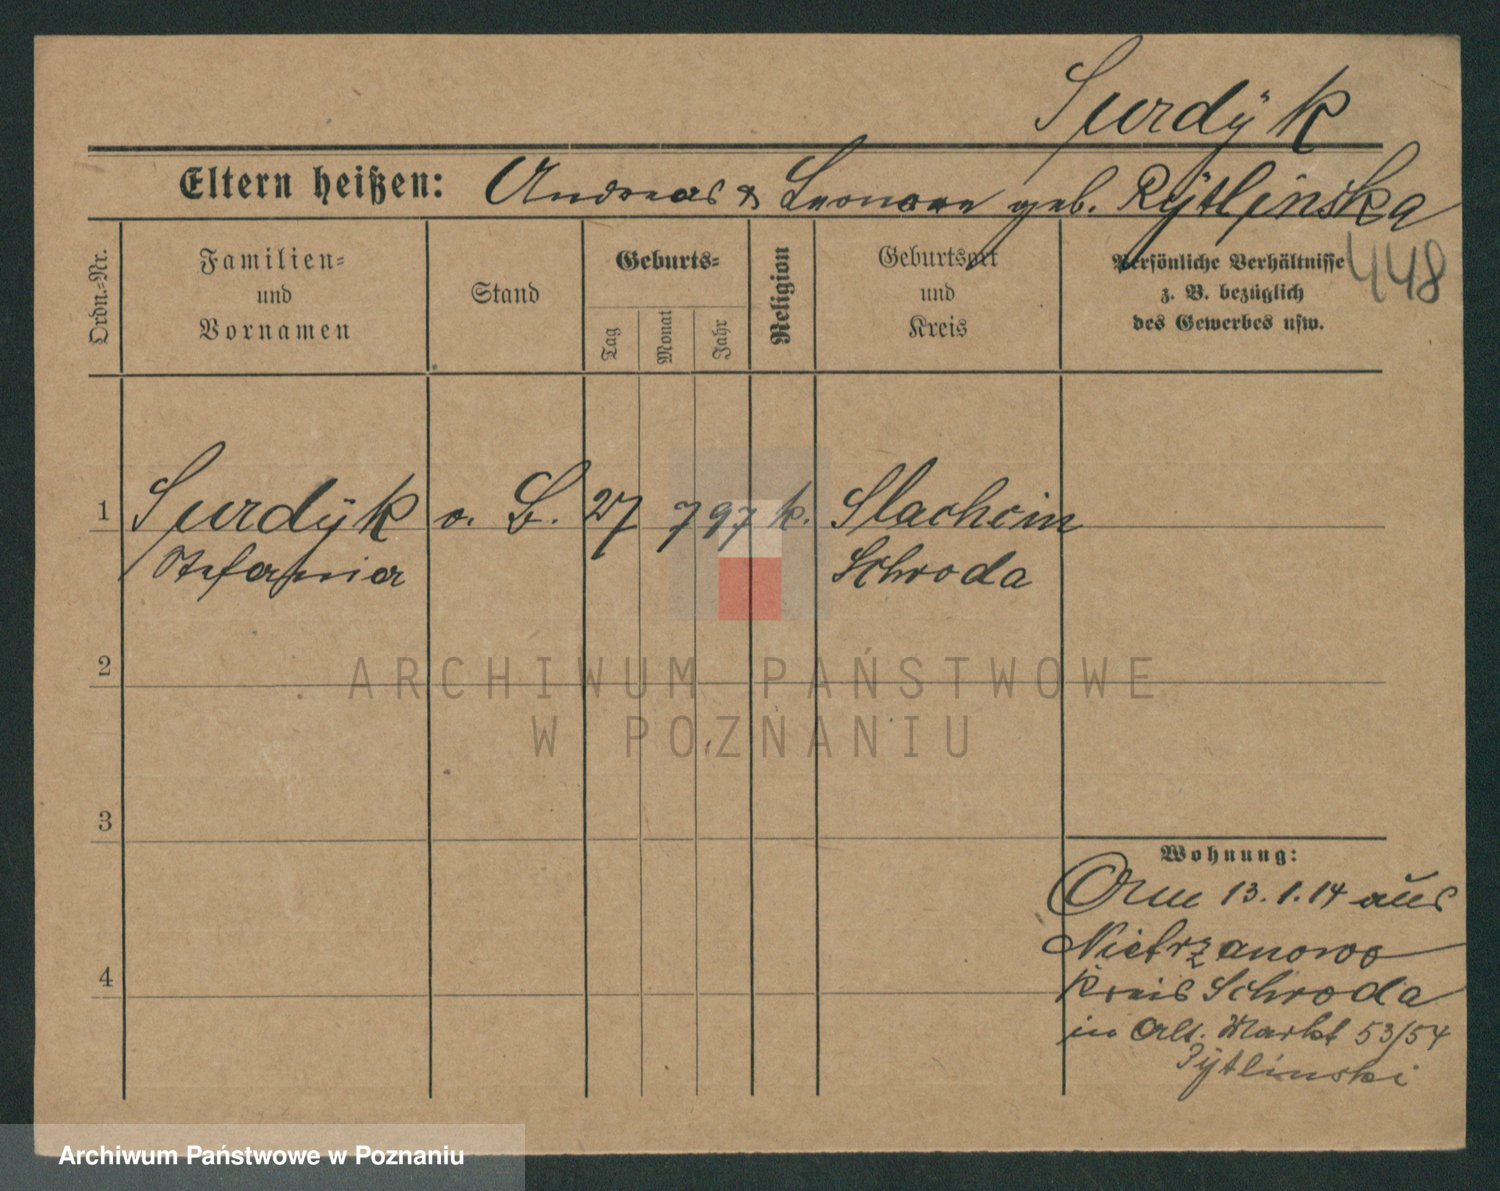 Surdÿk
Eltern heißen: Andreas & Leonore geb. Rÿtlinska
448
Ordn.-Nr.
Familien-
und
Vornamen
Stand
Geburts-
Tag
Monat
Jahr
Religion
Geburtsort
und
Kreis
Persönliche Verhältnisse
z. B. bezüglich
des Gewerbes usw.
1 Surdÿk o. B. 27 7 97 k. Slachcin
Stefania Schroda
2
3
4
Wohnung:
Am 13.1.14 aus
Nietrzanowo
Kreis Schroda
in Alt. Markt 53/54
ARCHIWUM PAŃSTWOWE
W POZNANIU
Archiwum Państwowe w Poznaniu